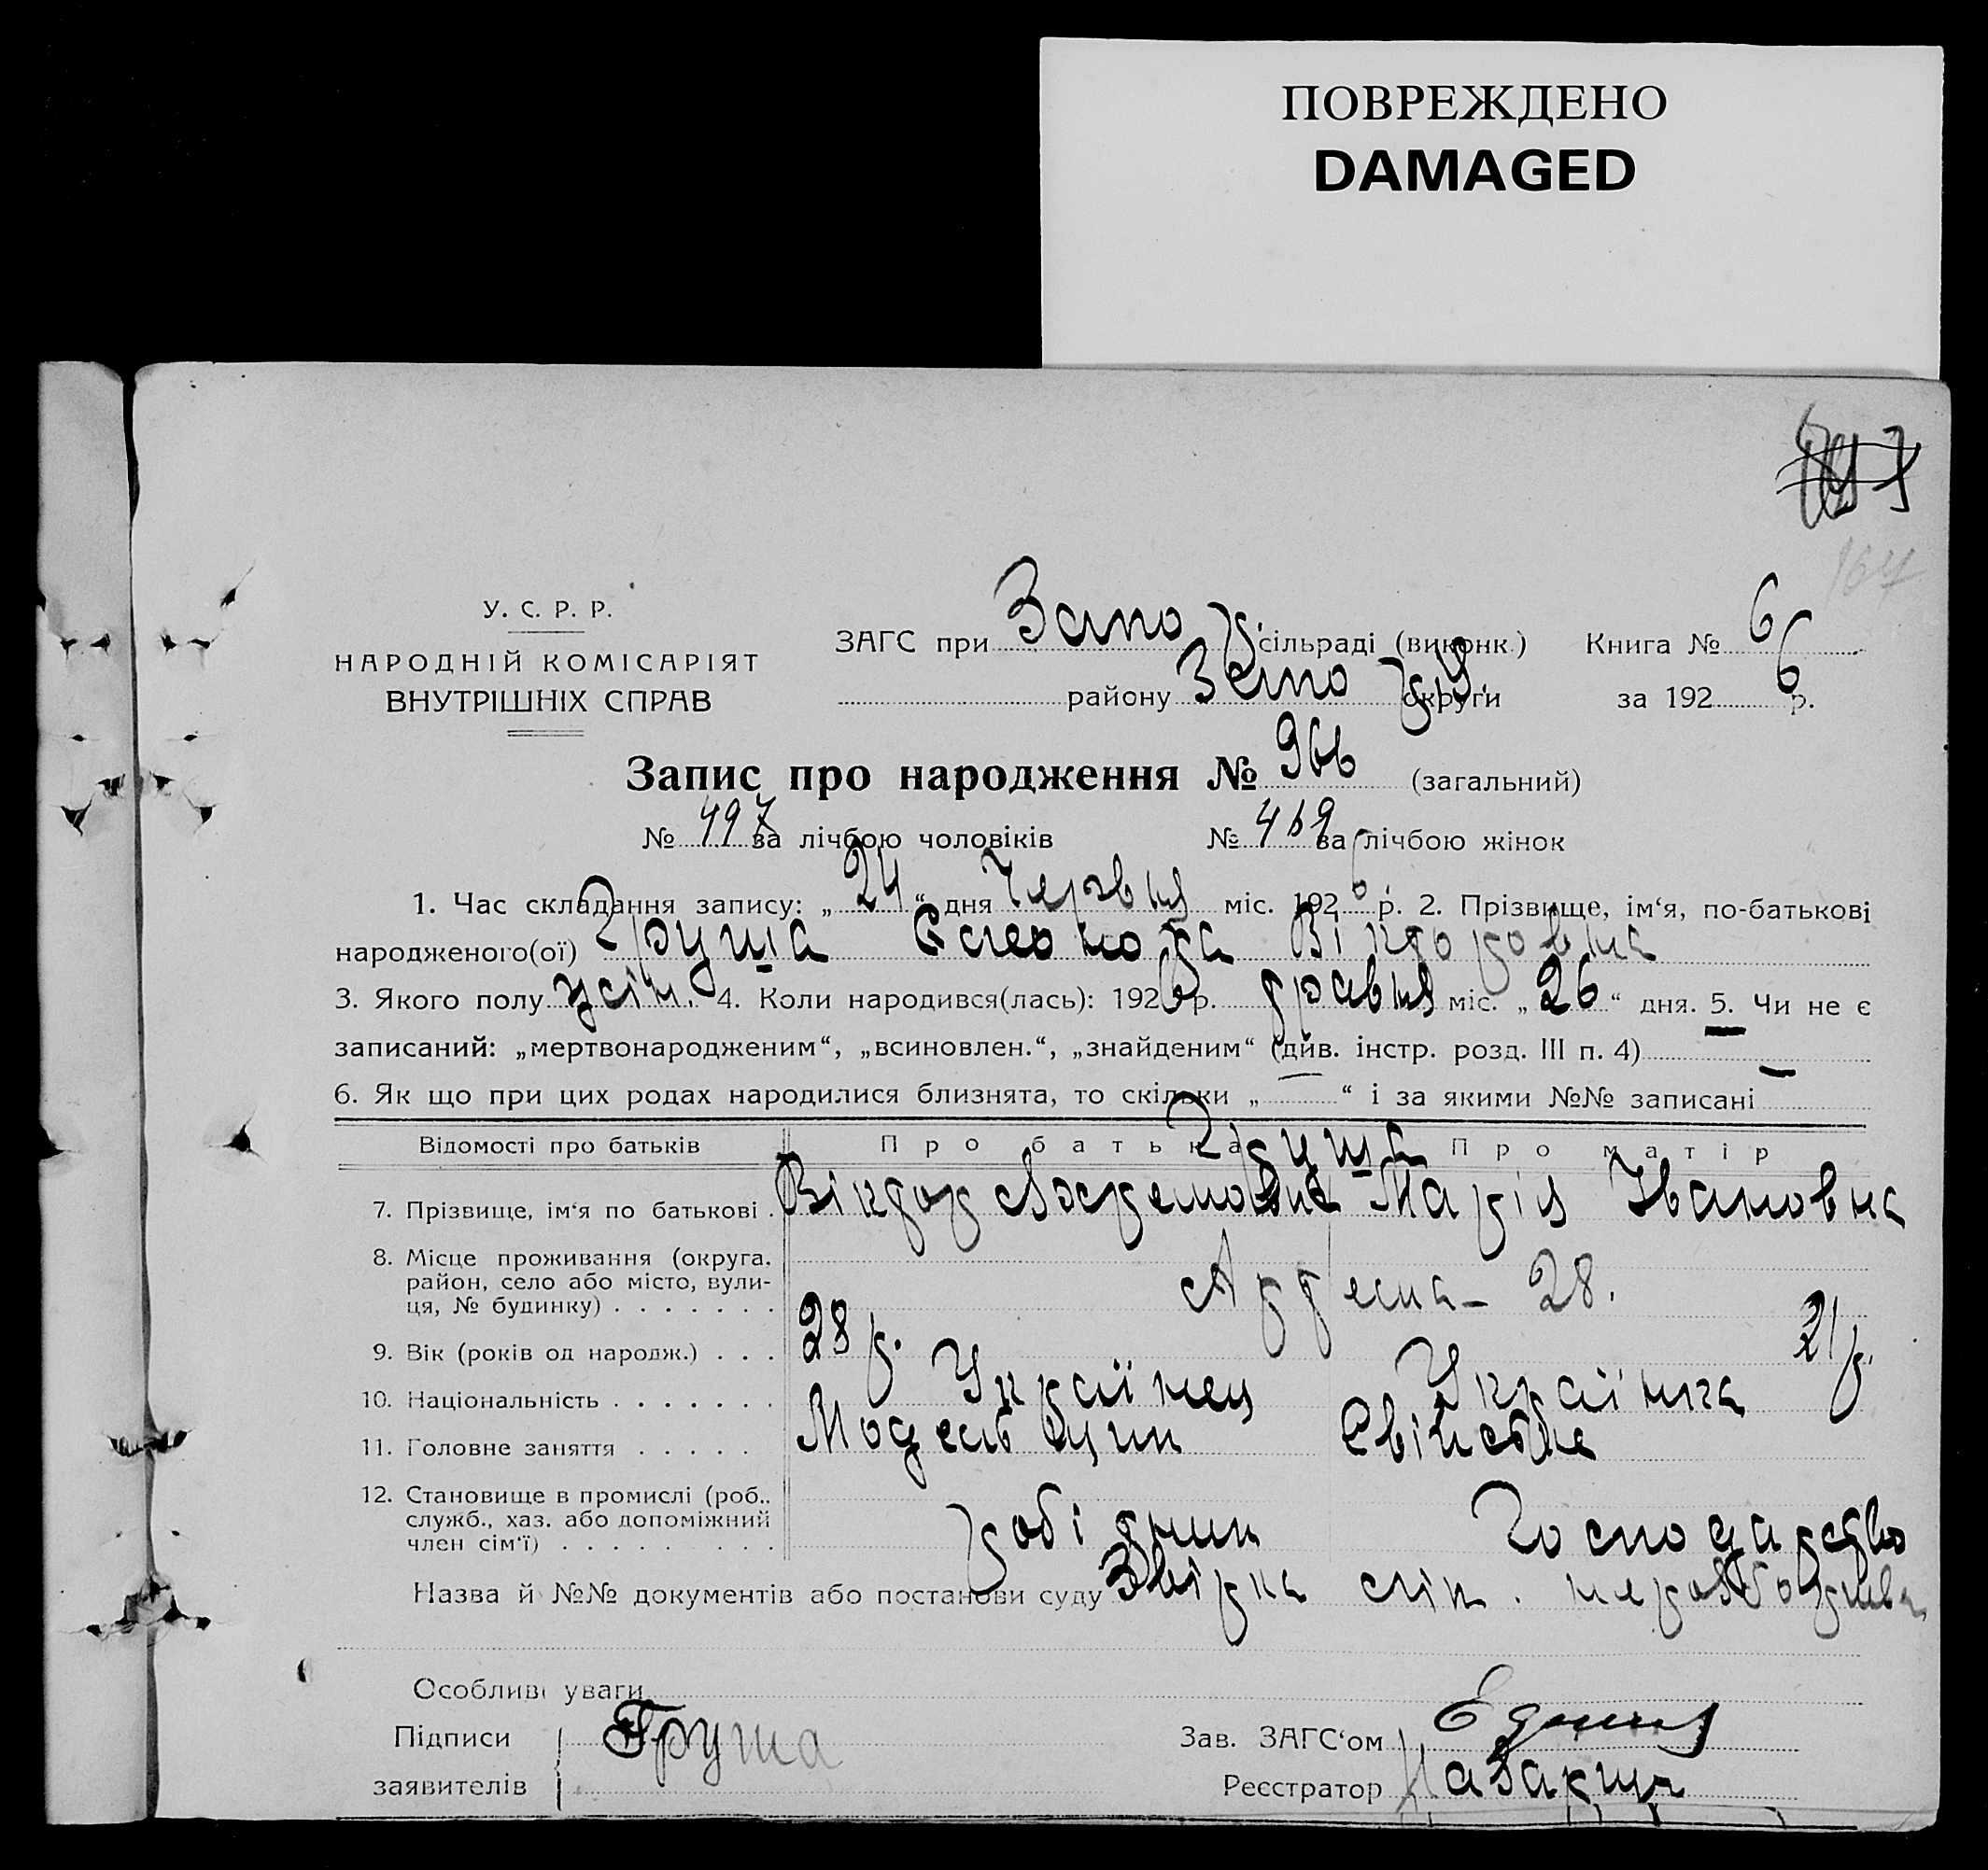 ПОВРЕЖДЕНО
DAMAGED
У. С. Р. Р.
НАРОДНІЙ КОМІСАРІЯТ
ВНУТРІШНІХ СПРАВ
ЗАГС при сільраді (виконк.) Книга № 6
району округи за 1926 р.
Запис про народження № 966 (загальний)
№ 497 за лічбою чоловіків № 469 за лічбою жінок
1. Час складання запису: „24“ дня Червня міс. 1926 р. 2. Прізвище, ім‘я, по-батькові
народженого(ої) Груша Елеонора Вікторовна
3. Якого полу жін. 4. Коли народився(лась): 1926 р. травня міс. „26“ дня. 5. Чи не є
записаний: „мертвонародженим“, „всиновлен.“, „знайденим“ (див. інстр. розд. III п. 4) —
6. Як що при цих родах народилися близнята, то скільки „—“ і за якими №№ записані —
Відомості про батьків Про батька Про матір
Груша
7. Прізвище, ім‘я по батькові Віктор Марія Івановна
8. Місце проживання (округа, район, село або місто, вулиця, № будинку) 28.
9. Вік (років од народж.) 28 р. 21 р.
10. Національність Українец Українка
11. Головне заняття Модельщик Свійське
12. Становище в промислі (роб., служб., хаз. або допоміжний член сім‘ї) робітник Господарство
Назва й №№ документів або постанови суду
Особливі уваги
Підписи заявителів Груша
Зав. ЗАГС‘ом
Реєстратор